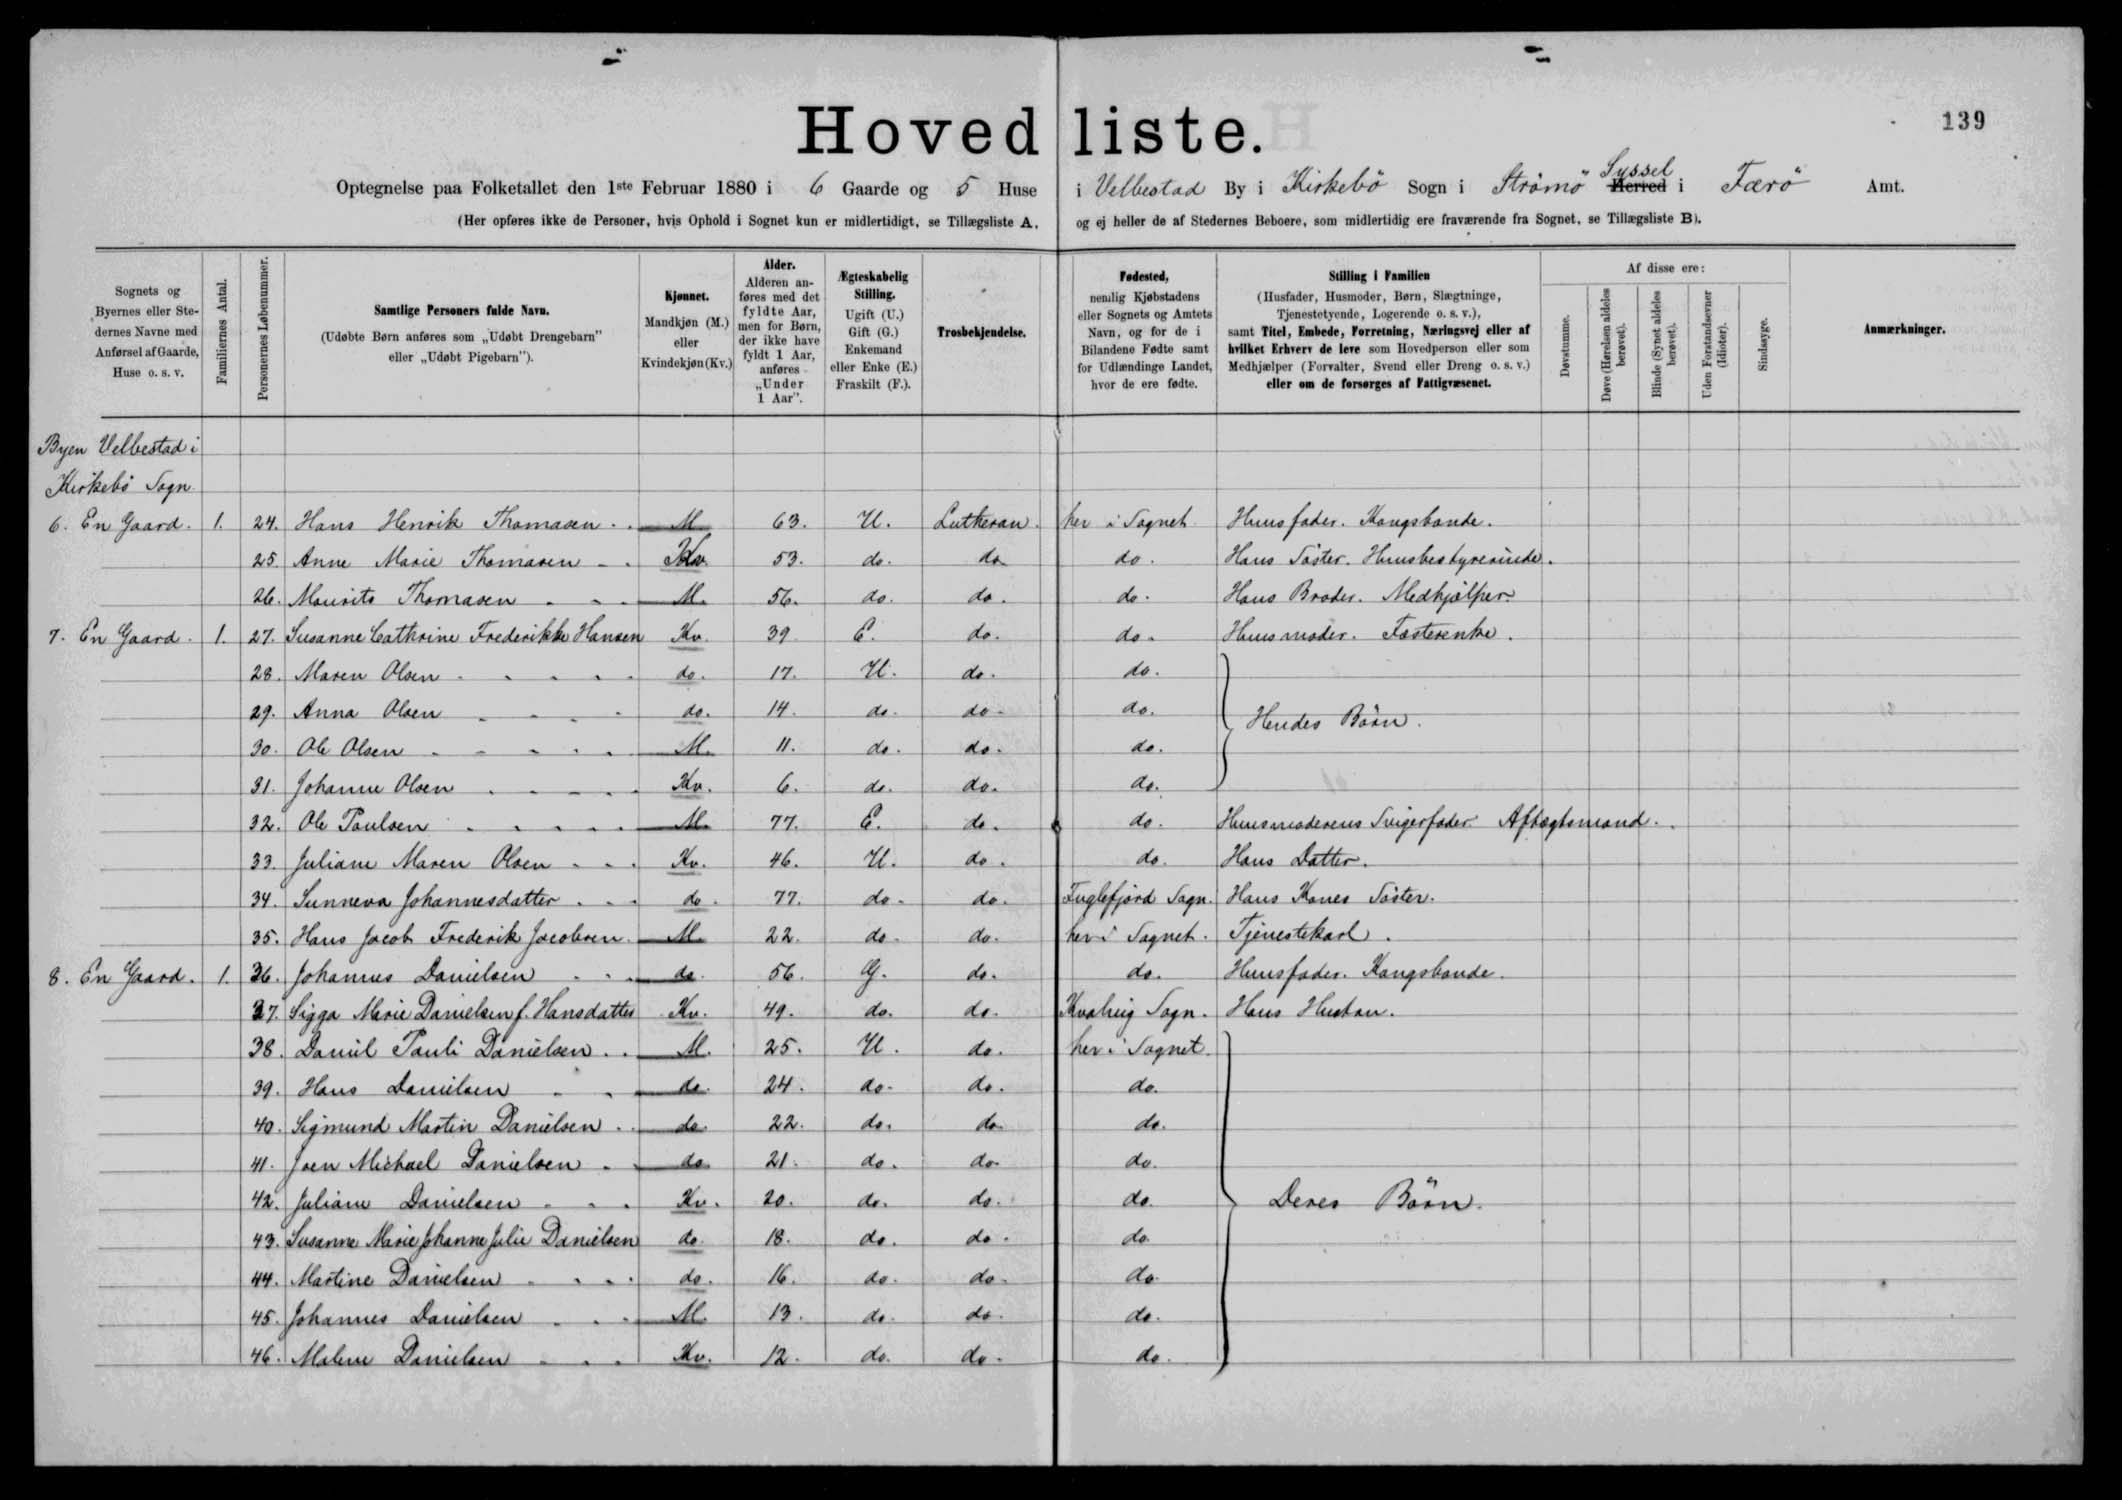 139
Hovedliste.
Optegnelse paa Folketallet den 1ste Februar 1880 i 6 Gaarde og 5 Huse i Velbestad By i Kirkebö Sogn i Strömö Syssel Herred i Færö Amt.
(Her opføres ikke de Personer, hvis Ophold i Sognet kun er midlertidigt, se Tillægsliste A, og ej heller de af Stedernes Beboere, som midlertidig ere fraværende fra Sognet, se Tillægsliste B).
Sognets og Byernes eller Stedernes Navne med Anførsel af Gaarde, Huse o. s. v.
Familiernes Antal.
Personernes Løbenummer.
Samtlige Personers fulde Navn.
(Udøbte Børn anføres som „Udøbt Drengebarn" eller „Udøbt Pigebarn").
Kjønnet.
Mandkjøn (M.) eller Kvindekjøn (Kv.)
Alder.
Alderen anføres med det fyldte Aar, men for Børn, der ikke have fyldt 1 Aar, anføres „Under 1 Aar".
Ægteskabelig Stilling.
Ugift (U.) Gift (G.) Enkemand eller Enke (E.) Fraskilt (F.).
Trosbekjendelse.
Fødested,
nemlig Kjøbstadens eller Sognets og Amtets Navn, og for de i Bilandene Fødte samt for Udlændinge Landet, hvor de ere fødte.
Stilling i Familien
(Husfader, Husmoder, Børn, Slægtninge, Tjenestetyende, Logerende o. s. v.),
samt Titel, Embede, Forretning, Næringsvej eller af hvilket Erhverv de leve som Hovedperson eller som Medhjælper (Forvalter, Svend eller Dreng o. s. v.) eller om de forsørges af Fattigvæsenet.
Af disse ere:
Døvstumme.
Døve (Hørelsen aldeles berøvet).
Blinde (Synet aldeles berøvet).
Uden Forstandsevner (Idioter).
Sindssyge.
Anmærkninger.
Byen Velbestad i
Kirkebö Sogn.
6. En Gaard. 1. 24. Hans Henrik Thomasen M 63. U. Lutheran. her i Sognet Huusfader. Kongsbonde.
25. Anne Marie Thomasen Kv. 53. do. do do. Hans Söster. Huusbestyrerinde.
26. Mourits Thomasen M. 56. do. do. do. Hans Broder. Medhjælper.
7. En Gaard. 1. 27. Susanne Cathrine Frederikke Hansen Kv. 39 E. do. do. Huusmoder. Fæsterenke.
28. Maren Olsen do. 17. U. do. do.
29. Anna Olsen do. 14. do. do. do. Hendes Börn.
30. Ole Olsen M. 11. do. do. do.
31. Johanne Olsen Kv. 6. do. do. do.
32. Ole Poulsen M. 77. E. do. do. Huusmoderens Svigerfader. Aftægtsmand.
33. Juliane Maren Olsen Kv. 46. U. do. do. Hans Datter.
34. Sunneva Johannesdatter do. 77. do. do. Fuglefjord Sogn. Hans Kones Söster.
35. Hans Jacob Frederik Jacobsen. M. 22. do. do. her i Sognet. Tjenestekarl.
8. En Gaard. 1. 36. Johannes Danielsen do. 56. G. do. do. Huusfader. Kongsbonde.
37. Sigga Marie Danielsen f. Hansdatter Kv. 49. do. do. Kvalvig Sogn. Hans Hustru.
38. Daniel Pauli Danielsen M. 25. U. do. her i Sognet.
39. Hans Danielsen do. 24. do. do. do.
40. Sigmund Martin Danielsen do. 22. do. do. do.
41. Joen Michael Danielsen do 21. do. do. do.
42. Juliane Danielsen Kv. 20. do. do. do. Deres Börn.
43. Susanne Marie Johanne Julie Danielsen do. 18. do. do. do.
44. Martine Danielsen do. 16. do. do. do.
45. Johannes Danielsen M. 13. do. do. do.
46. Malene Danielsen Kv. 12. do. do. do.